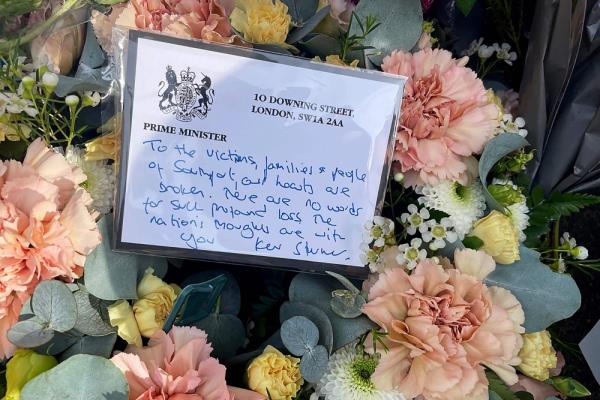 10 DOWNING STREET,
LONDON, SW1A 2AA
PRIME MINISTER
To the victims, families & people
of Southport, our hearts are
broken. There are no words
for such profound loss. The
nation's thoughts are with
you Keir Starmer